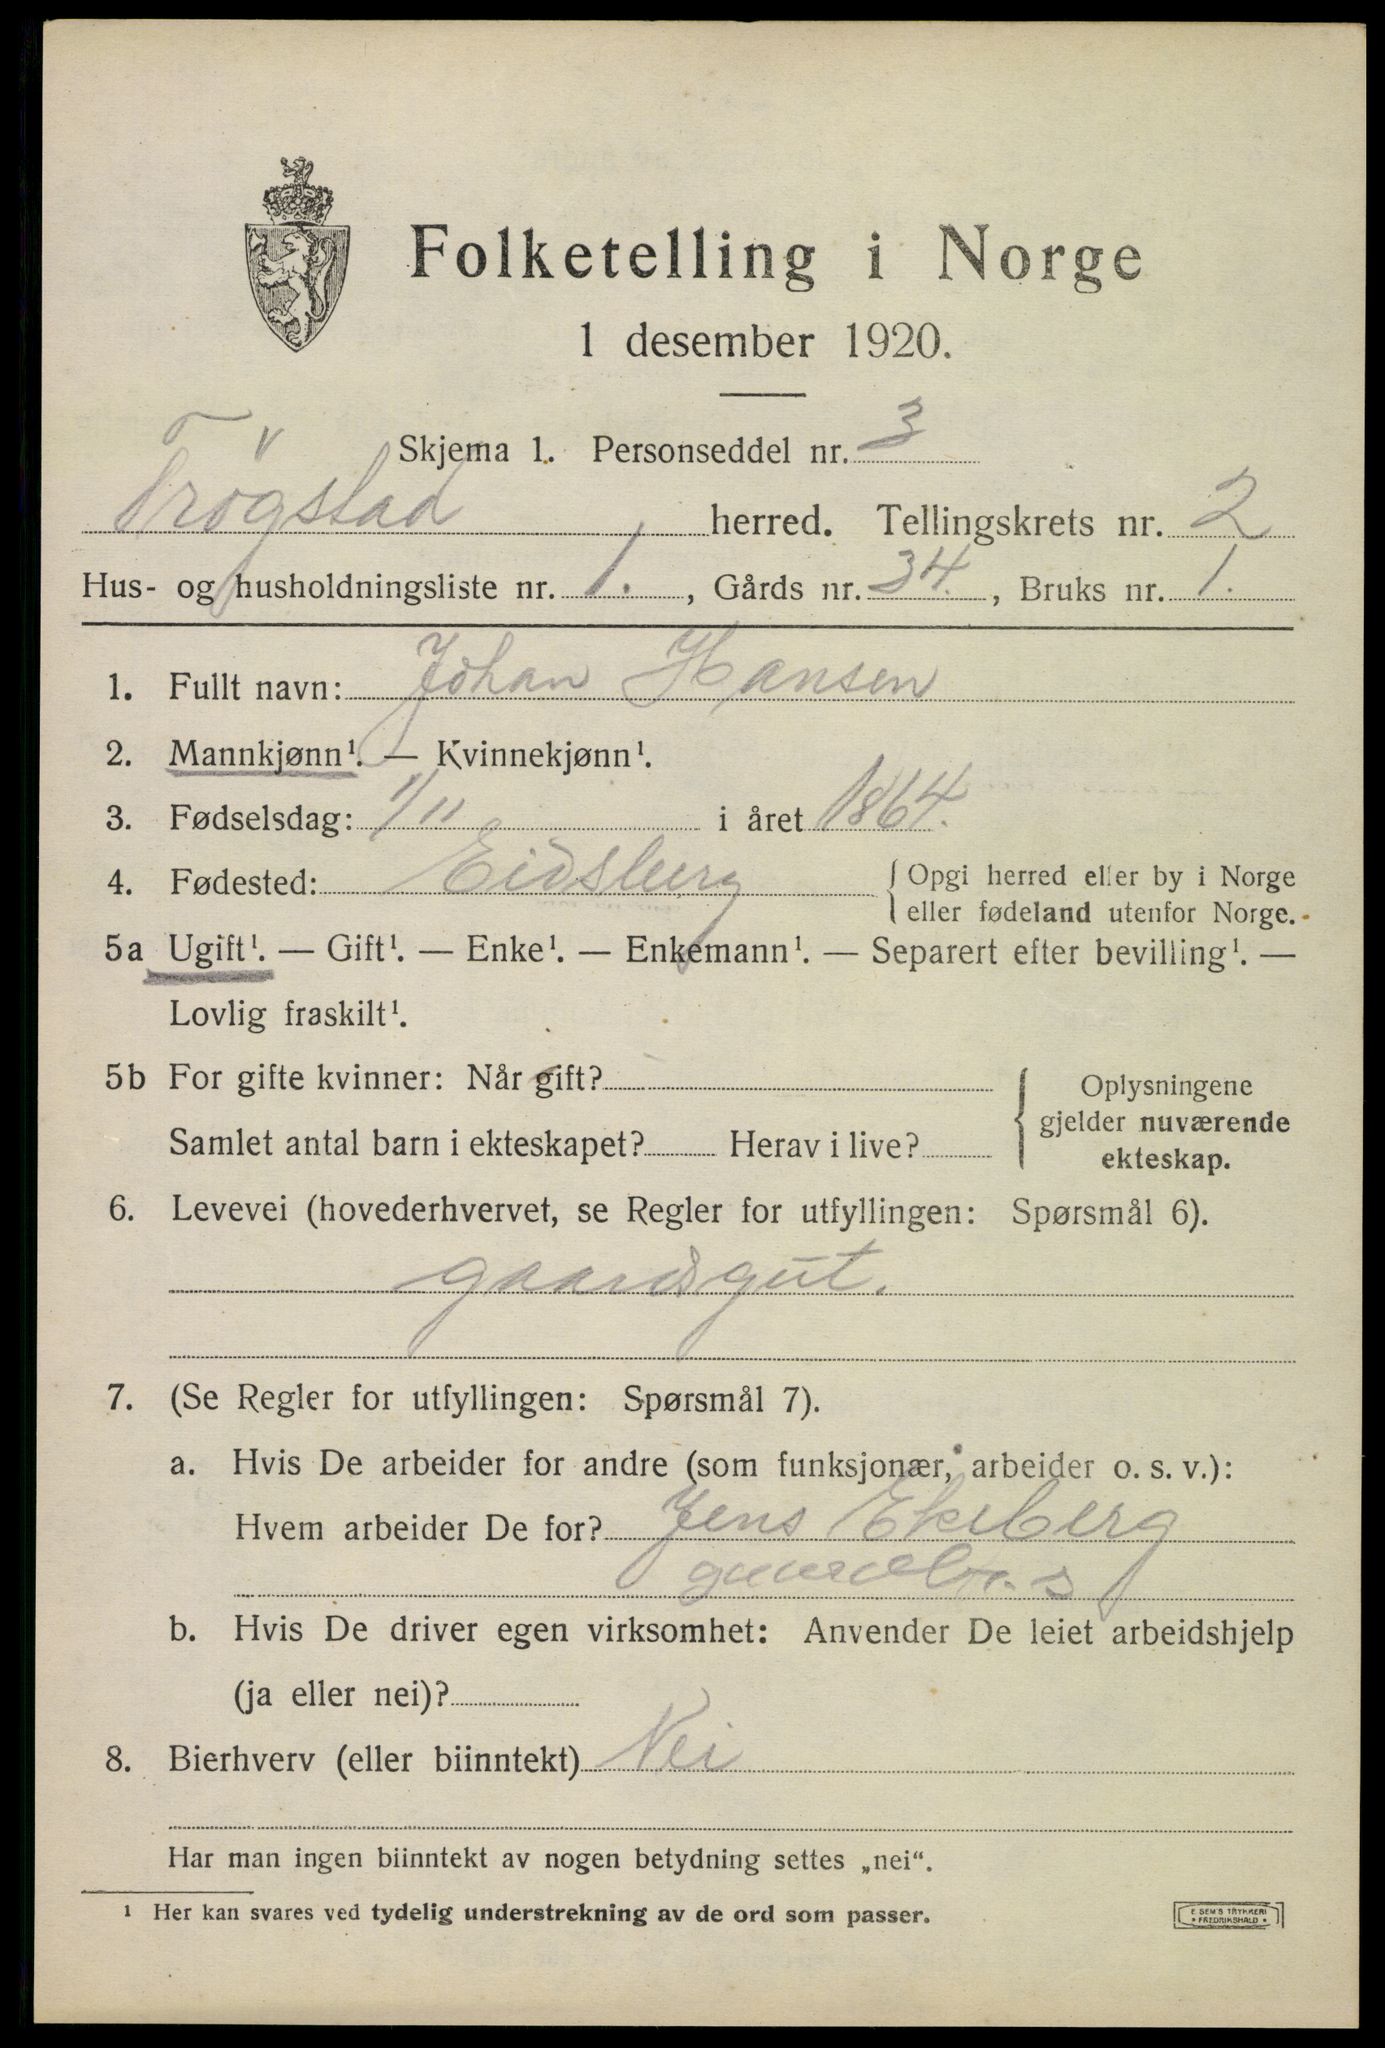 Folketelling i Norge
1 desember 1920.
Skjema 1. Personseddel nr. 3
Trøgstad herred. Tellingskrets nr. 2
Hus- og husholdningsliste nr. 1., Gårds nr. 34., Bruks nr. 1.
1. Fullt navn: Johan Hansen
2. Mannkjønn¹. — Kvinnekjønn¹.
3. Fødselsdag: 1/11 i året 1864.
4. Fødested: Eidsberg { Opgi herred eller by i Norge
eller fødeland utenfor Norge.
5a Ugift¹. — Gift¹. — Enke¹. — Enkemann¹. — Separert efter bevilling¹. —
Lovlig fraskilt¹.
5b For gifte kvinner: Når gift?
Samlet antal barn i ekteskapet? Herav i live?
{ Oplysningene
gjelder nuværende
ekteskap.
6. Levevei (hovederhvervet, se Regler for utfyllingen: Spørsmål 6).
gaardsgut.
7. (Se Regler for utfyllingen: Spørsmål 7).
a. Hvis De arbeider for andre (som funksjonær, arbeider o. s. v.):
Hvem arbeider De for? Jens Ekeberg
gaardbr. s
b. Hvis De driver egen virksomhet: Anvender De leiet arbeidshjelp
(ja eller nei)?
8. Bierhverv (eller biinntekt) Nei
Har man ingen biinntekt av nogen betydning settes „nei".
¹ Her kan svares ved tydelig understrekning av de ord som passer.
E SEM'S TRYKKERI
• FREDRIKSHALD •